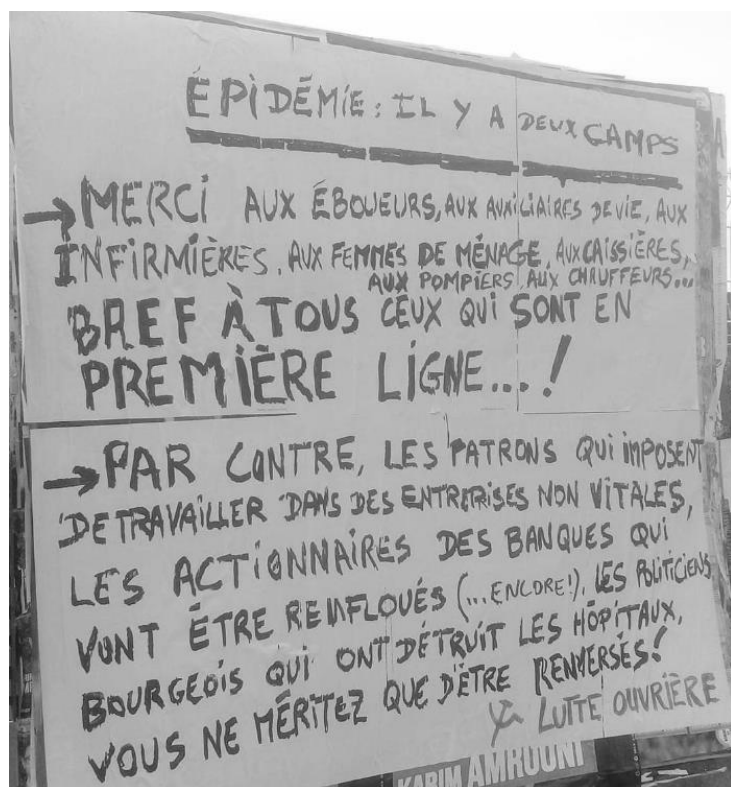 ÉPIDÉMIE : IL Y A DEUX CAMPS
→ MERCI AUX ÉBOUEURS, AUX AUXILIAIRES DE VIE, AUX
INFIRMIÈRES, AUX FEMMES DE MÉNAGE, AUX CAISSIÈRES,
AUX POMPIERS, AUX CHAUFFEURS...
BREF À TOUS CEUX QUI SONT EN
PREMIÈRE LIGNE...!
→ PAR CONTRE, LES PATRONS QUI IMPOSENT
DE TRAVAILLER DANS DES ENTREPRISES NON VITALES,
LES ACTIONNAIRES DES BANQUES QUI
VONT ÊTRE RENFLOUÉS (...ENCORE!), LES POLITICIENS
BOURGEOIS QUI ONT DÉTRUIT LES HÔPITAUX,
VOUS NE MÉRITEZ QUE D'ÊTRE RENVERSÉS!
LUTTE OUVRIÈRE
KARIM AMROUNI